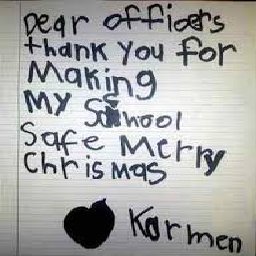 Dear officers
thank you for
Making
My School
Safe Merry
Chrismas
Karmen